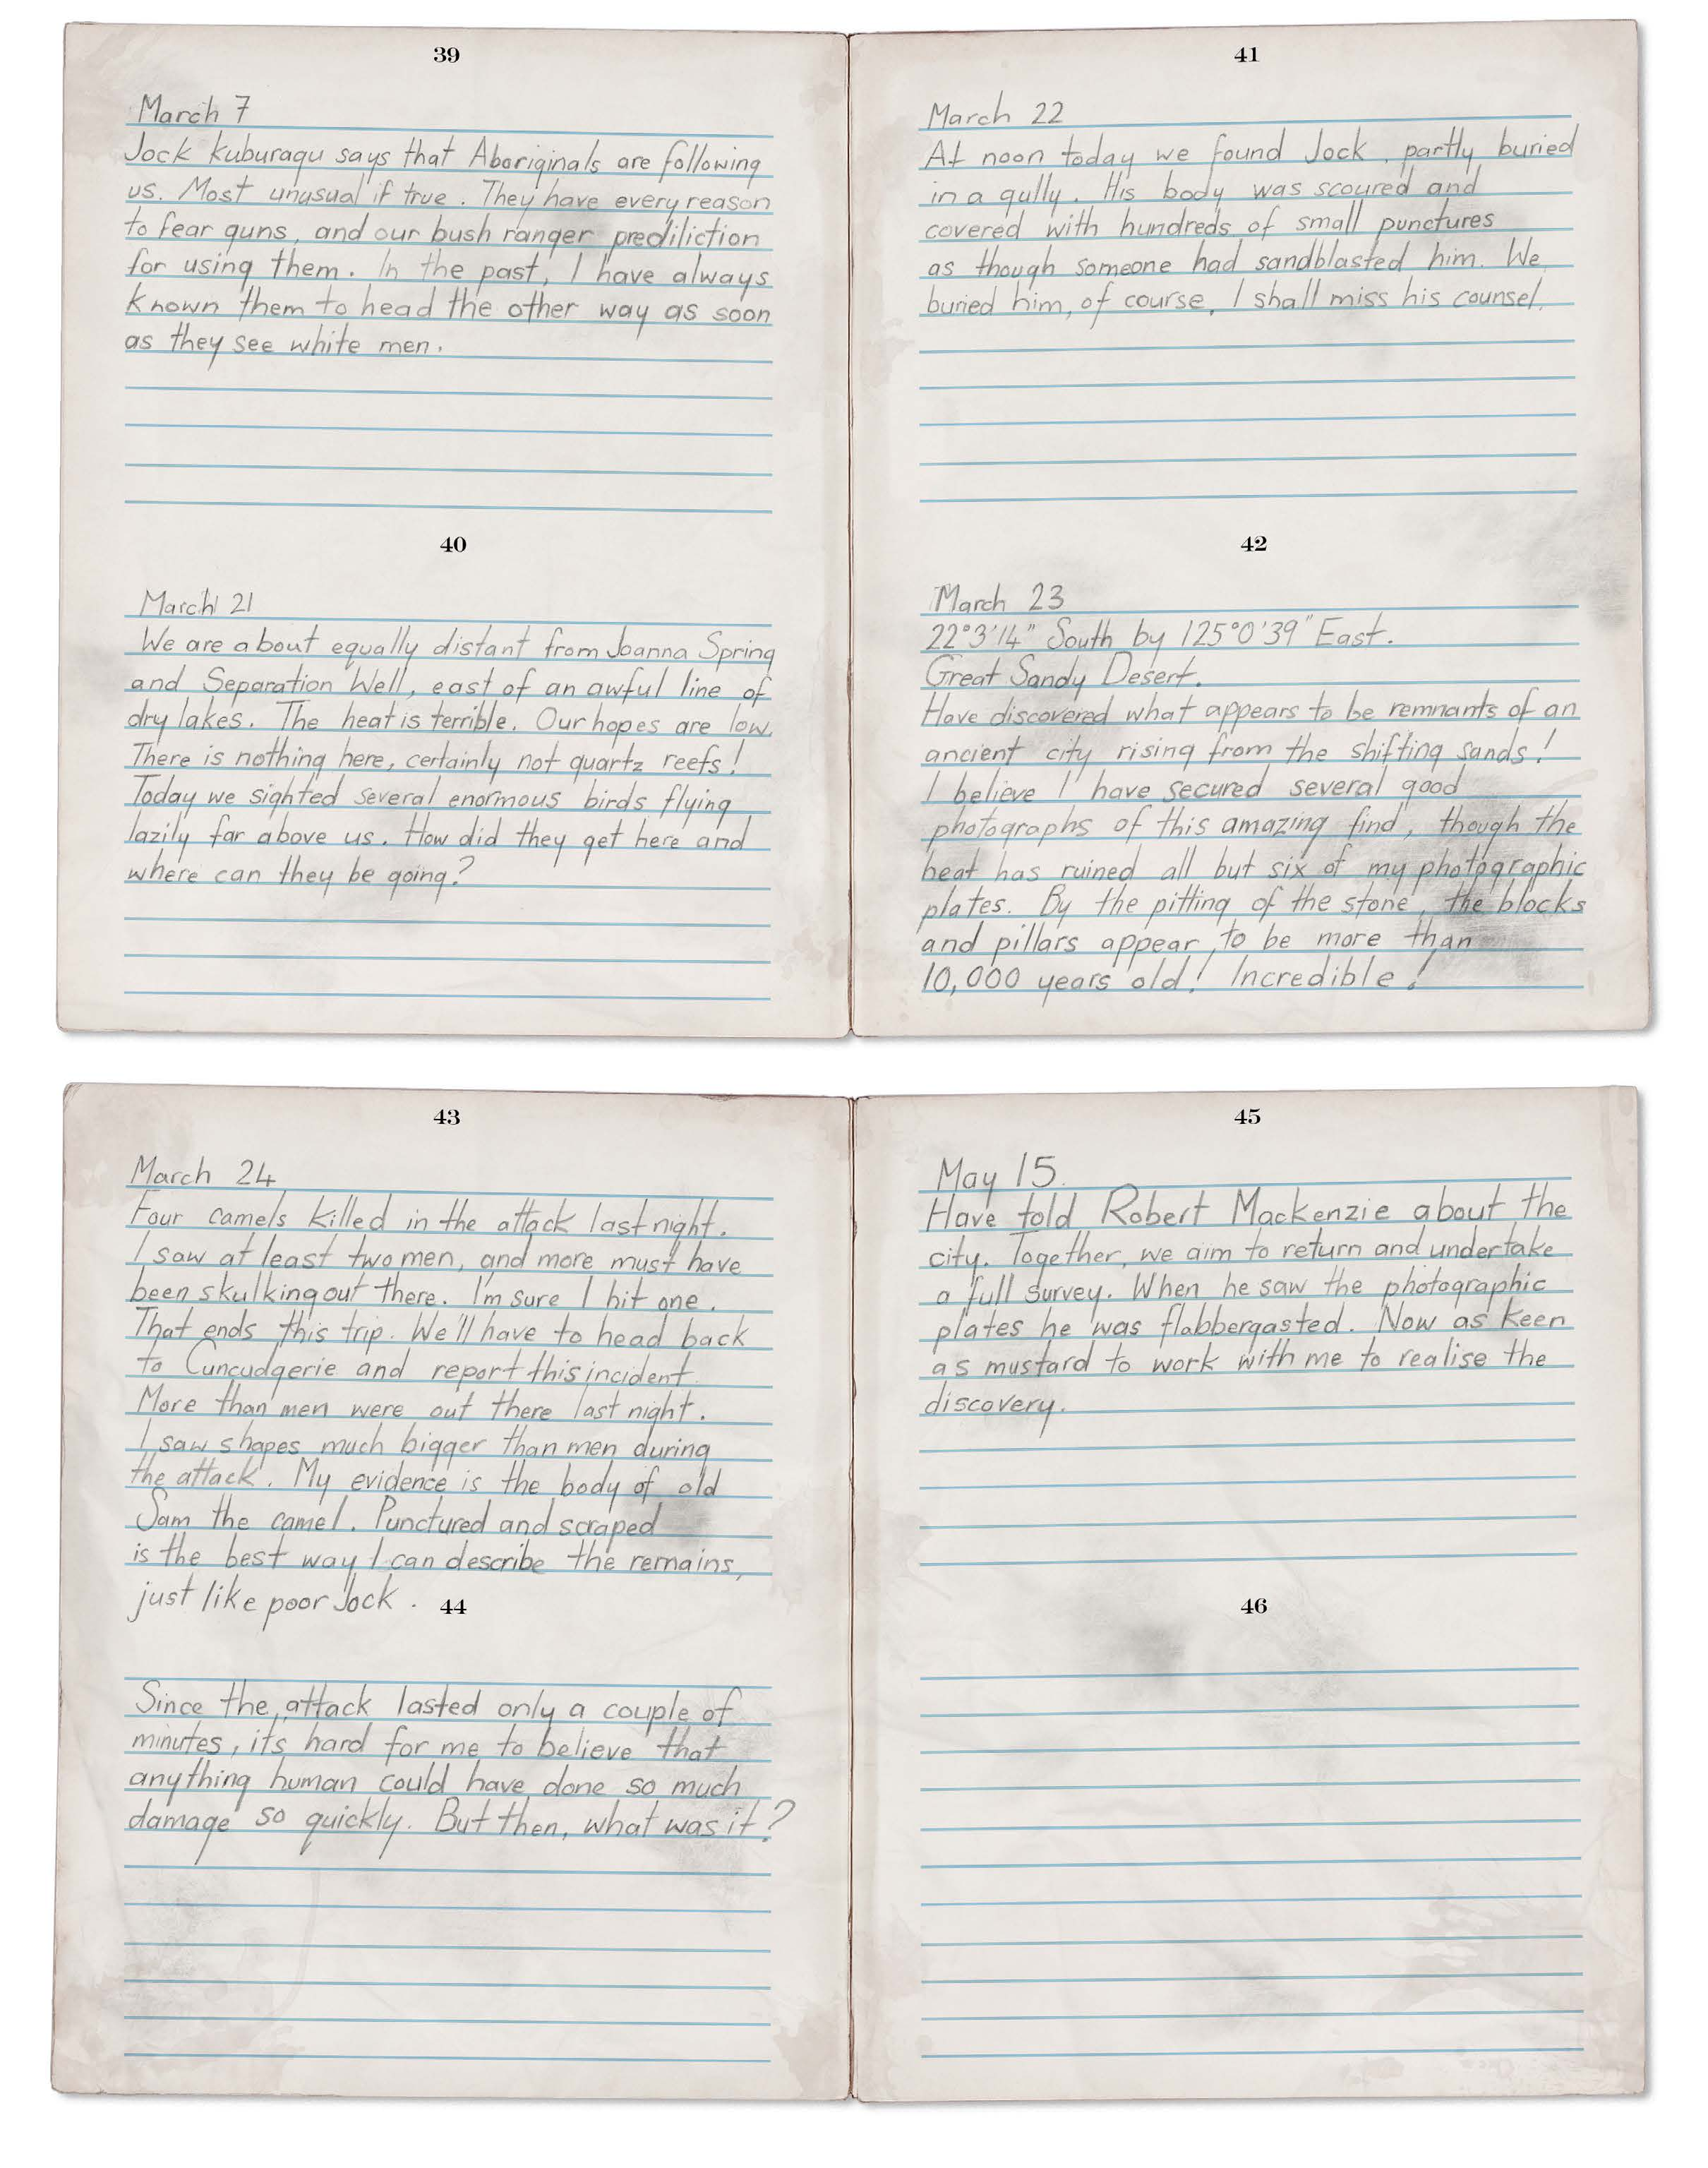 39
March 7
Jock Kuburagu says that Aboriginals are following
us. Most unusual if true. They have every reason
to fear guns, and our bush ranger prediliction
for using them. In the past, I have always
known them to head the other way as soon
as they see white men.
40
March 21
We are about equally distant from Joanna Spring
and Separation Well, east of an awful line of
dry lakes. The heat is terrible. Our hopes are low.
There is nothing here, certainly not quartz reefs!
Today we sighted several enormous birds flying
lazily far above us. How did they get here and
where can they be going?
41
March 22
At noon today we found Jock, partly buried
in a gully. His body was scoured and
covered with hundreds of small punctures
as though someone had sandblasted him. We
buried him, of course. I shall miss his counsel.
42
March 23
22°3'14" South by 125°0'39" East.
Great Sandy Desert.
Have discovered what appears to be remnants of an
ancient city rising from the shifting sands!
I believe I have secured several good
photographs of this amazing find, though the
heat has ruined all but six of my photographic
plates. By the pitting of the stone, the blocks
and pillars appear to be more than
10,000 years old! Incredible!
43
March 24
Four camels killed in the attack last night.
I saw at least two men, and more must have
been skulking out there. I'm sure I hit one.
That ends this trip. We'll have to head back
to Cuncudgerie and report this incident.
More than men were out there last night.
I saw shapes much bigger than men during
the attack. My evidence is the body of old
Sam the camel. Punctured and scraped
is the best way I can describe the remains,
just like poor Jock.
44
Since the attack lasted only a couple of
minutes, its hard for me to believe that
anything human could have done so much
damage so quickly. But then, what was it?
45
May 15.
Have told Robert Mackenzie about the
city. Together, we aim to return and undertake
a full survey. When he saw the photographic
plates he was flabbergasted. Now as keen
as mustard to work with me to realise the
discovery.
46